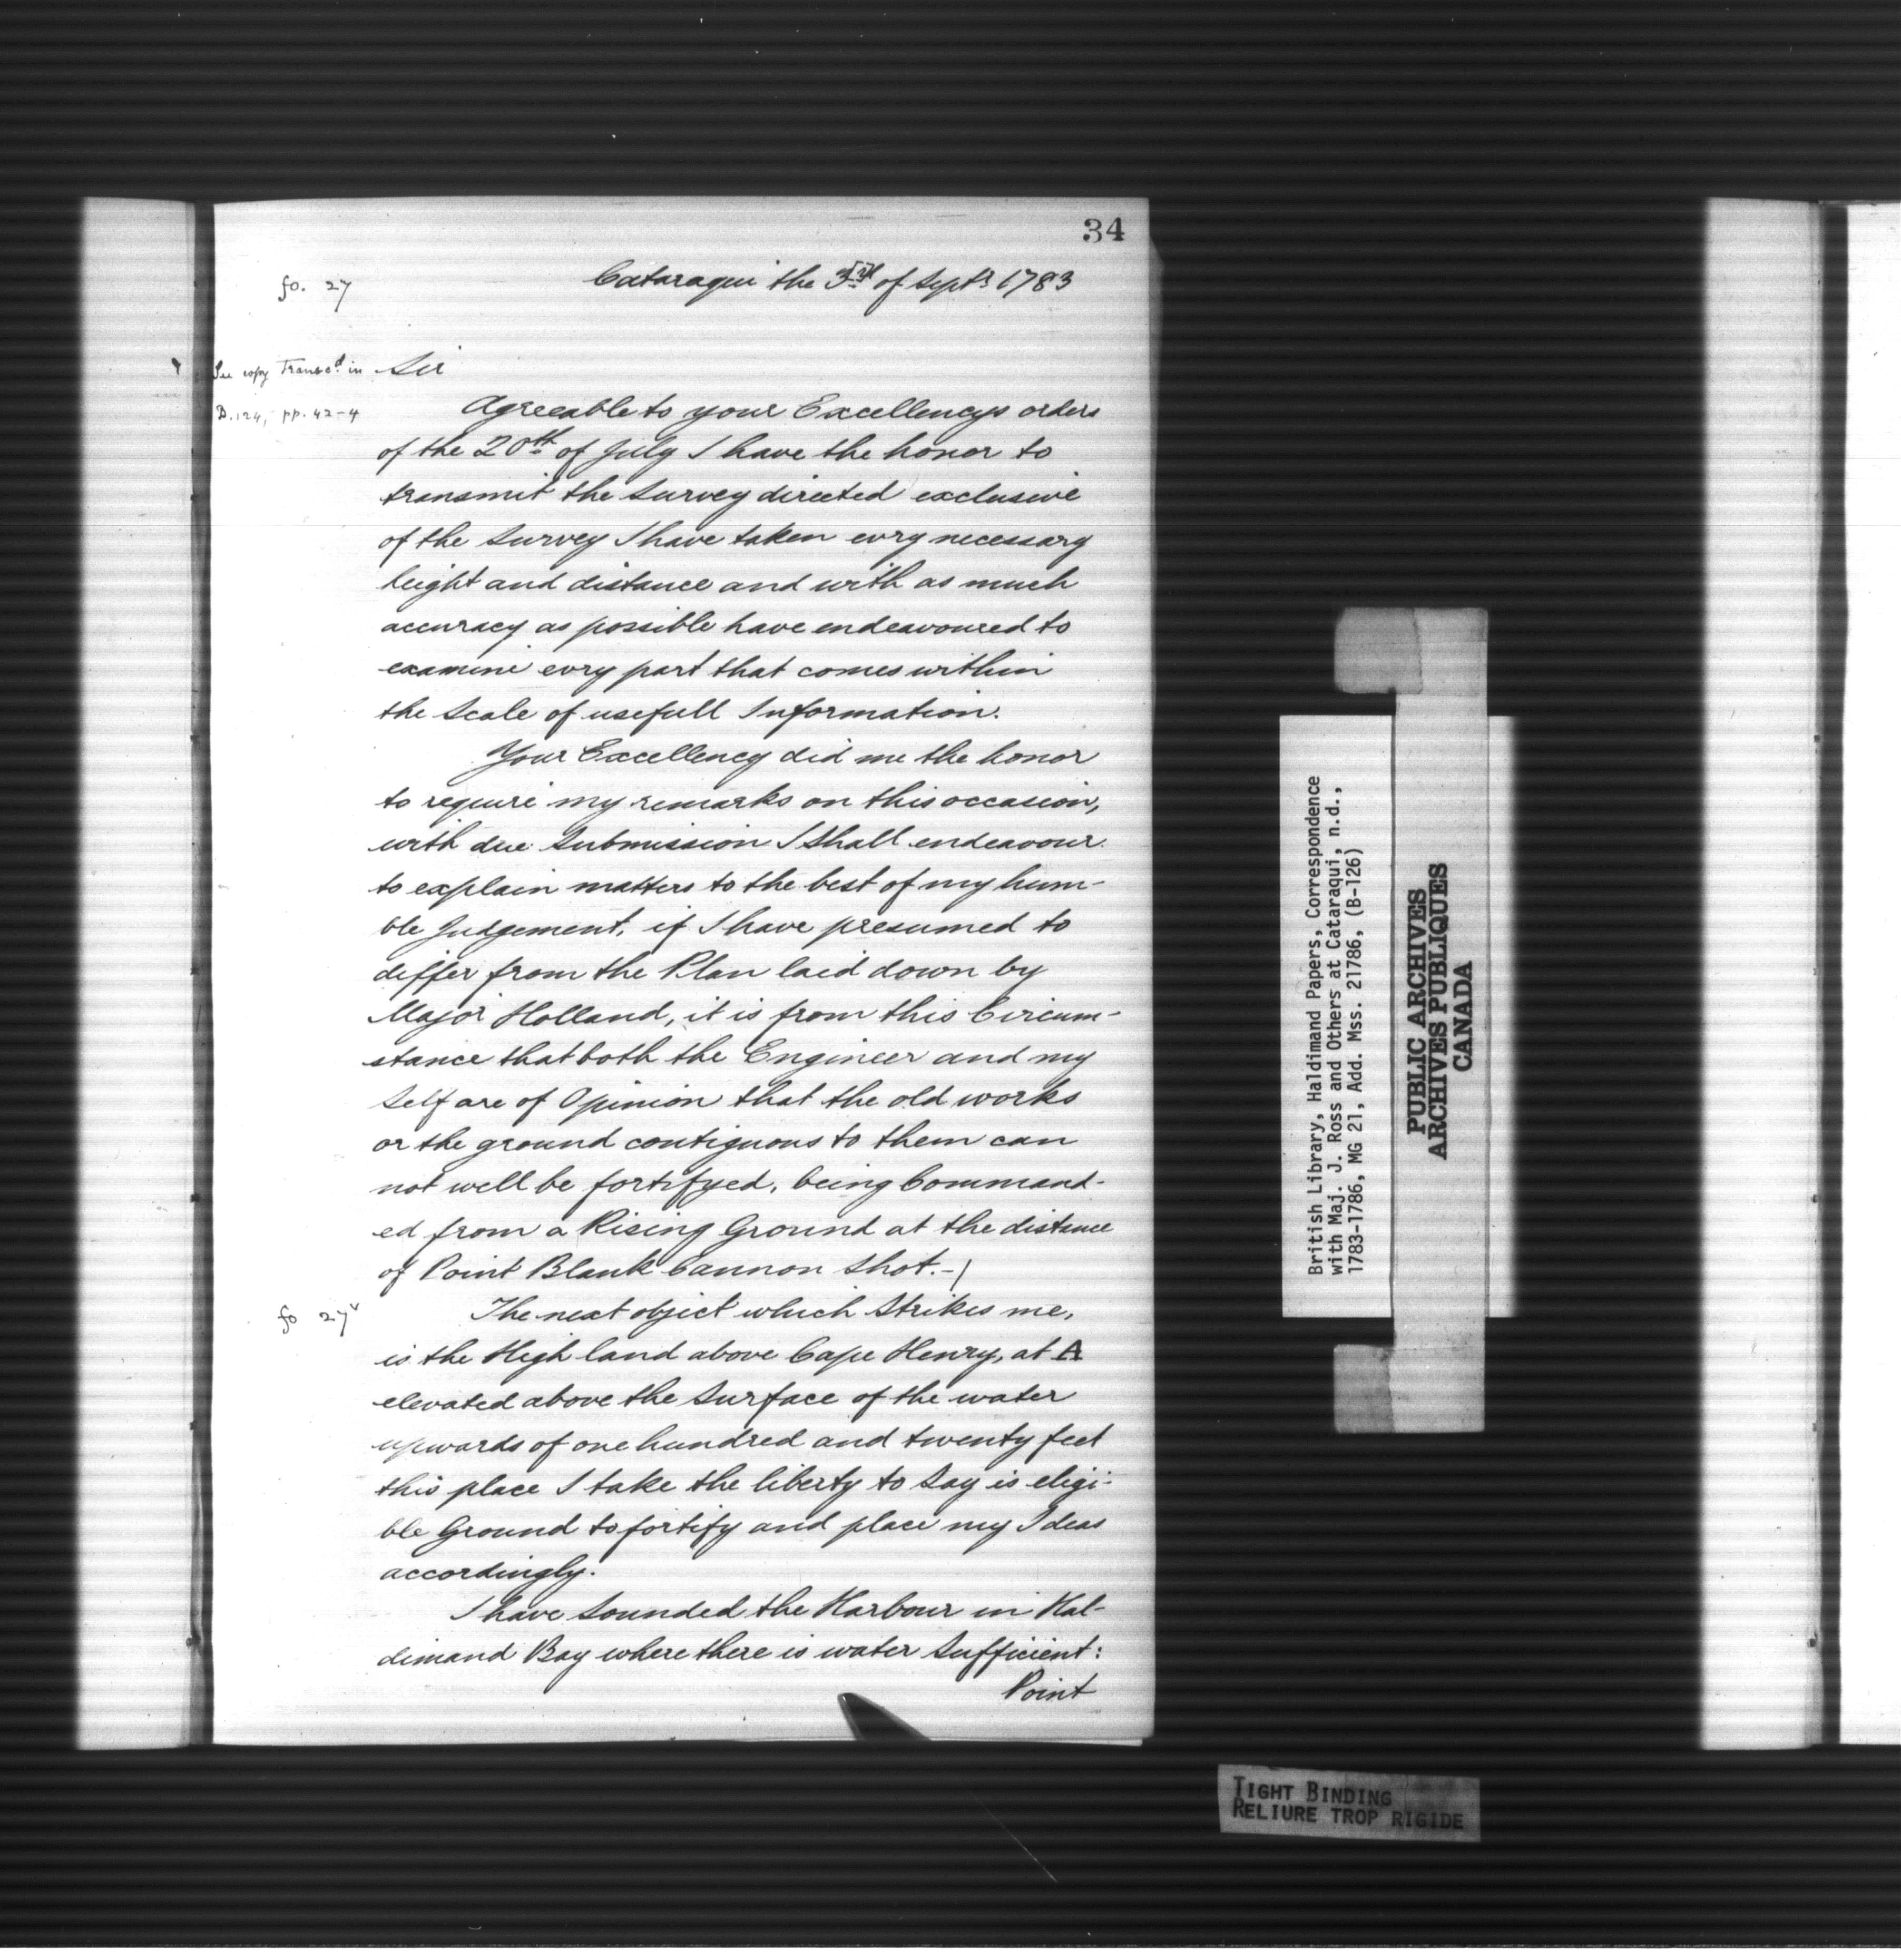 34
fo. 27
Cataraqui the 3rd of Septr 1783
See copy Transcd. in
B. 124, pp. 42-4
Sir
Agreeable to your Excellencys orders
of the 20th of July I have the honor to
transmit the Survey directed exclusive
of the Survey I have taken evry necessary
height and distance and with as much
accuracy as possible have endeavoured to
examine evry part that comes within
the Scale of usefull Information.
Your Excellency did me the honor
to require my remarks on this occasion,
with due Submission I Shall endeavour
to explain matters to the best of my hum-
ble Judgement, if I have presumed to
differ from the Plan laid down by
Major Holland, it is from this Circum-
stance that both the Engineer and my
Self are of Opinion that the old works
or the ground contiguous to them can
not well be fortifyed, being Command-
ed from a Rising Ground at the distance
of Point Blank Cannon Shot.-/
fo 27v
The next object which Strikes me,
is the High land above Cape Henry, at A
elevated above the Surface of the water
upwards of one hundred and twenty feet
this place I take the liberty to Say is eligi-
ble Ground to fortify and place my Ideas
accordingly.
I have Sounded the Harbour in Hal-
dimand Bay where there is water Sufficient:
Point
British Library, Haldimand Papers, Correspondence
with Maj. J. Ross and Others at Cataraqui, n.d.,
1783-1786, MG 21, Add. Mss. 21786, (B-126)
PUBLIC ARCHIVES
ARCHIVES PUBLIQUES
CANADA
TIGHT BINDING
RELIURE TROP RIGIDE